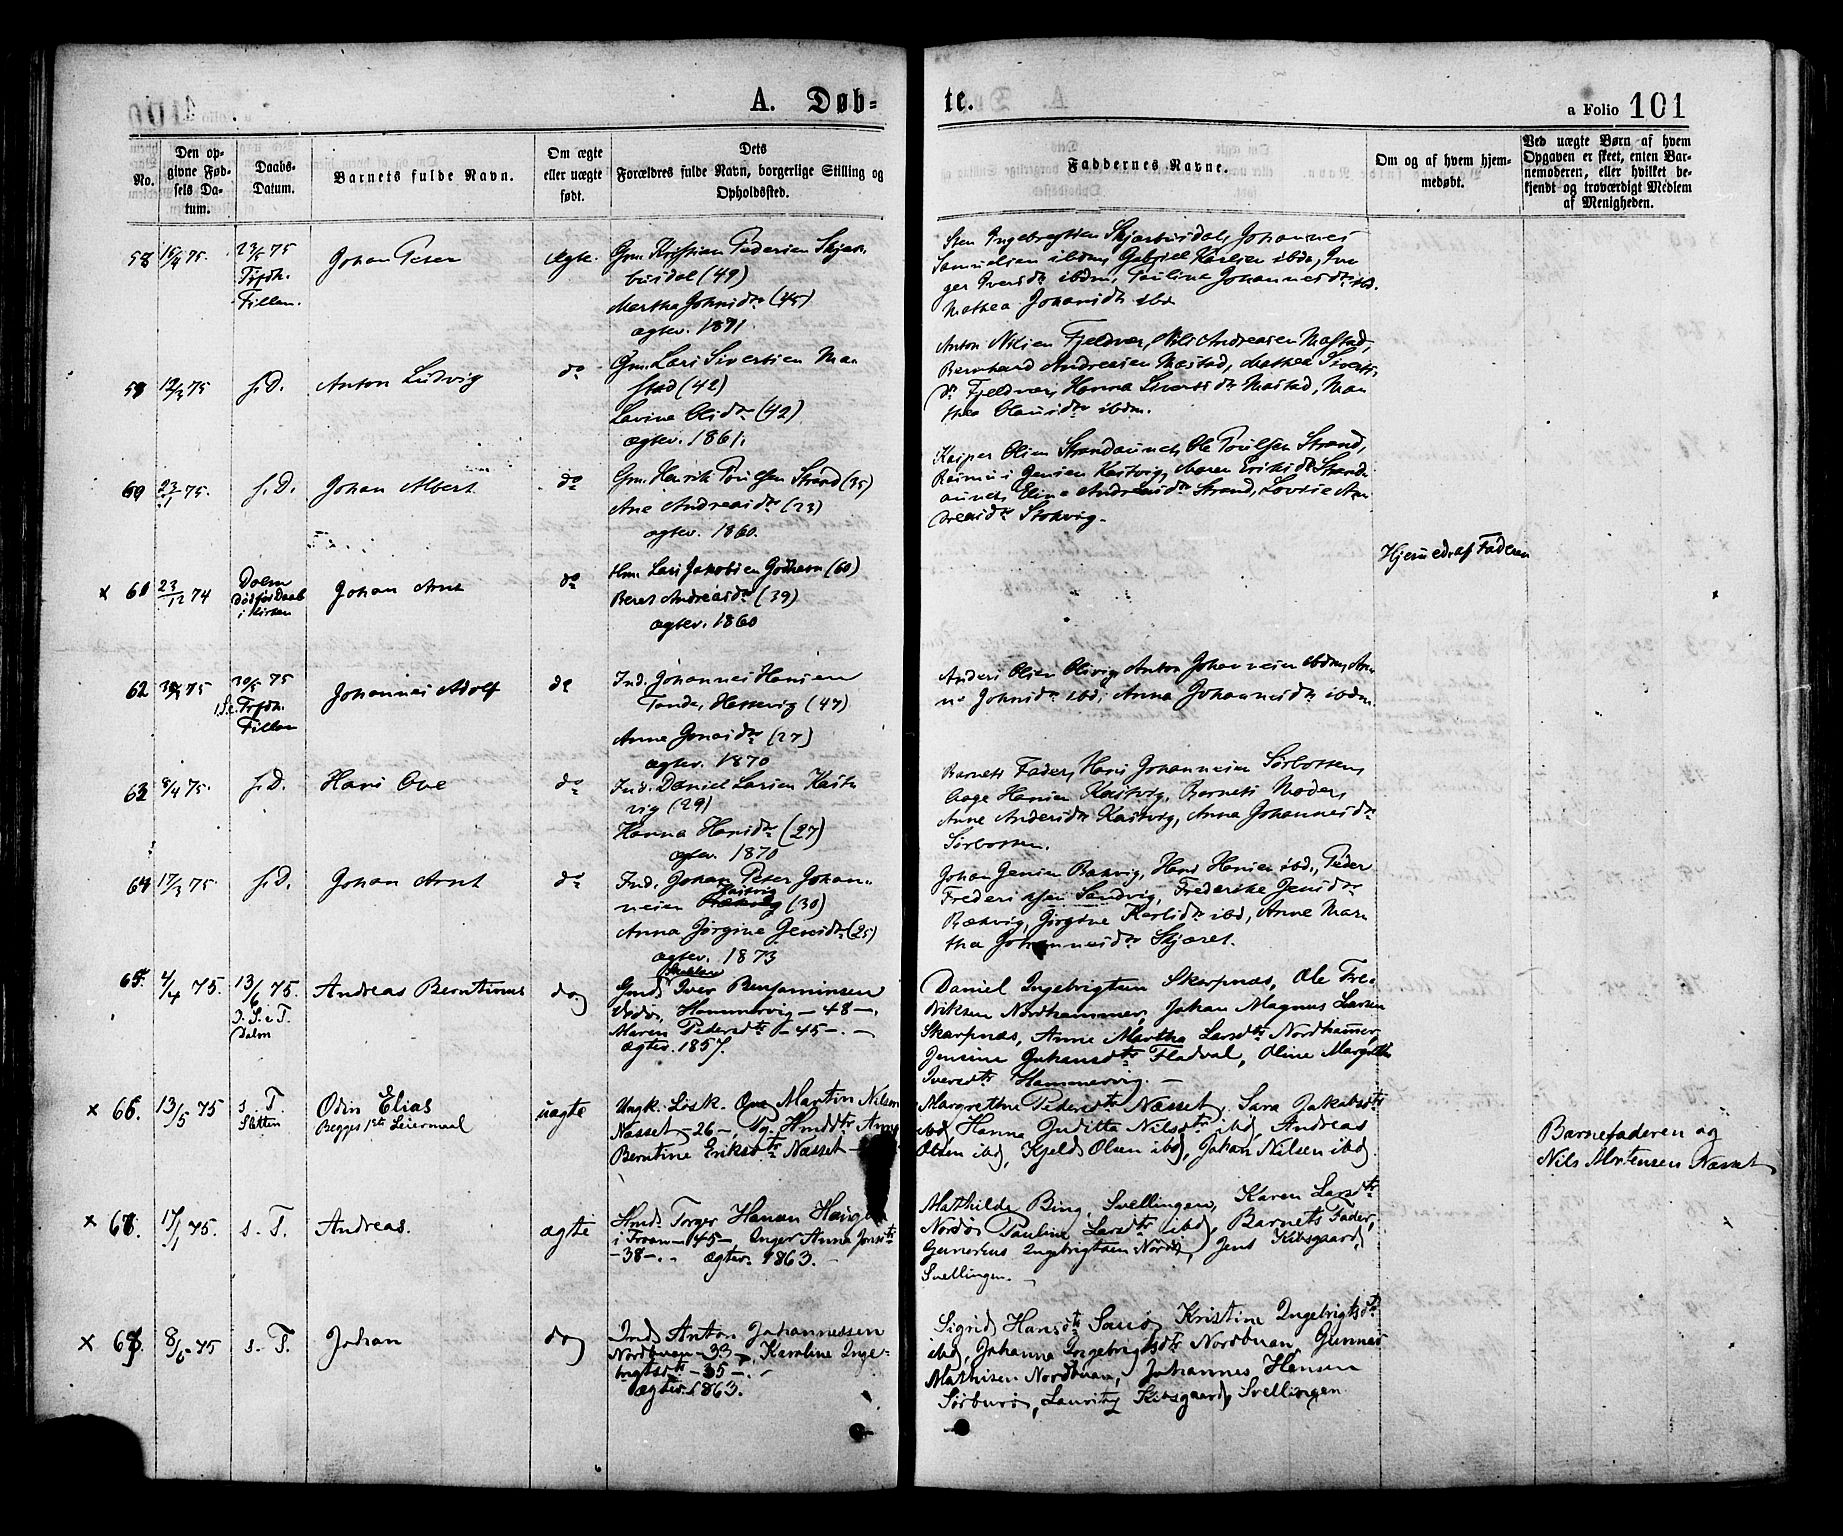 A. Døb=
te.
a Folio 101
No.
Den op-
givne Fød-
sels Da-
tum.
Daabs-
Datum.
Barnets fulde Navn.
Om ægte
eller uægte
født.
Dets
Forældres fulde Navn, borgerlige Stilling og
Opholdssted.
Faddernes Navne.
Om og af hvem hjem-
medøbt.
Ved uægte Børn af hvem
Opgaven er skeet, enten Bar-
nemoderen, eller hvilket be-
kjendt og troværdigt Medlem
af Menigheden.
75.
23/5 75
Frdk.
Fillan.
Johan Peter
Ægte.
Gm. Kristian Pedersen
busdal (49)
Martha Johnsdr (45)
ægtev. 1871.
Sten Ingebregtsen Johannes
Samuelsen ibdm, Gabriel ibdm,
ger Iversdr ibdm, Paulina Johannesdr
Mathea Johansdr ibd
12/3 75
s. D.
Anton Ludvig
do
Gm. Lars Sivertsen Ma-
stad (42)
Lovina Olsdr (42)
ægtev. 1861.
Anton Nilsen Fjeldvær, Nils Andreasen Mastad,
Bernhard Andreasen Mastad, Mathea Siverts-
dr Fjeldvær, Hanna Siversdr Mastad, Mar-
thea ibdm.
60
23/1 75.
s. D.
Johan Albert
do
Gm. Henrik Poulsen Strand (35)
Ane Andreasdr (23)
ægtev. 1860.
Kasper Olsen Strandaunet, Ole Poulsen Strand,
Rasmus Jensen Kastvig, Maren Eriksdr Strand-
aunet, Eline Andreasdr Strand, Lovise An-
dreasdr Stokvig.
x 61
23/12 74
Dolm
i Kirken
Johan Arnt
do
Hm. Lars Jakobsen Godhavn (60)
Beret Andreasdr (39)
ægtev. 1860
Hjemmed. af Faderen
62
75
30/5 75
Frdk.
Fillan
Johannes Adolf
do
Ind. Johannes Hansen
Tande, Hestvig (47)
Anne Jonasdr (27)
ægtev. 1870
Anders Olsen Olsvig, Anton Johannesen ibdm, An-
ne Johnsdr ibd, Anna Johannesdr ibdm.
63
9/4 75.
s. D.
Hans Ove
do
Ind. Daniel Larsen Kast-
vig (29)
Hanna Hansdr (27)
ægtev. 1870
Barnets Fader, Hans Johannesen Sørbotten,
Aage Hansen Kastvig, Barnets Moder,
Anne Andersdr Kastvig, Anna Johannesdr
Sørbotten.
64
17/3 75
s. D.
Johan Arnt
do
Ind. Johan Peter Johan-
nesen Kastvig (30)
Anna Jørgine Jensdr (25)
ægtev. 1873
Johan Jensen Bækvig, Hans Hansen ibd., Peder
Frederiksen Sandvig, Frederikke Jensdr
Bækvig, Jørgine Karlsdr ibd, Anne Mar-
tha Johannesdr Skjæret.
65.
4/4 75.
13/6 75.
D. S. e. T.
Dolm
Andreas Berntinus
do
Gmd. Iver Benjaminsen
Hammervig - 48 -.
Maren Pedersdtr - 45 -.
Ægtev. 1857.
Daniel Ingebrigtsen Skarpnæs, Ole Fre-
driksen Nordhammer, Johan Magnus Larsen
Skarpnæs, Anne Martha Larsdtr Nordhammer,
Jensine Johansdtr Fladval, Oline Margrethe
Iversdtr Hammervig. -
x 66.
13/5 75
s. T.
Sletten
Odin Elias
Begges 1ste Leiermaal
uægte
Ungk. Losk. Ove Martin Nilsen
Næsset - 26 -, Pg. Anne
Berntine Eriksdtr Næsset -
Margrethe Pedersdtr Næsset, Sara Jakobsdtr
ibd, Hanna Juditta Nilsdtr ibd, Andreas
Olsen ibd, Kjeld Olsen ibd, Johan Nilsen ibd.
Barnefaderen og
Nils Mortensen Næsset
x 67.
17/1 75.
s. T.
Andreas.
ægte
Hmd. Torger Hansen
i Froan - 45 - Inger Anna Jonsdtr
- 38 -. Ægtev. 1863. -
Mathilde Bing, Svellingen, Karen Larsdtr
Nordøi, Pauline Larsdtr ibd, Barnets Fader,
Gunerius Ingebrigtsen Nordøi, Jens Kilsgaard,
Svellingen. -
x 68.
8/5 75
s. T.
Johan
do
Ind. Anton Johannessen
Nordbuan - 33 -, Karoline Inge-
brigtsdtr - 35 -.
Ægtev. 1863.
Sigrid Hansdtr Kristine Ingebrigtsdtr
ibd, Johanna Ingebrigtsdtr Nordbuan, Gunnar
Mathisen Nordbuan, Johannes Hansen
Sørburøi, Lauritz Kilsgaard, Svellingen.